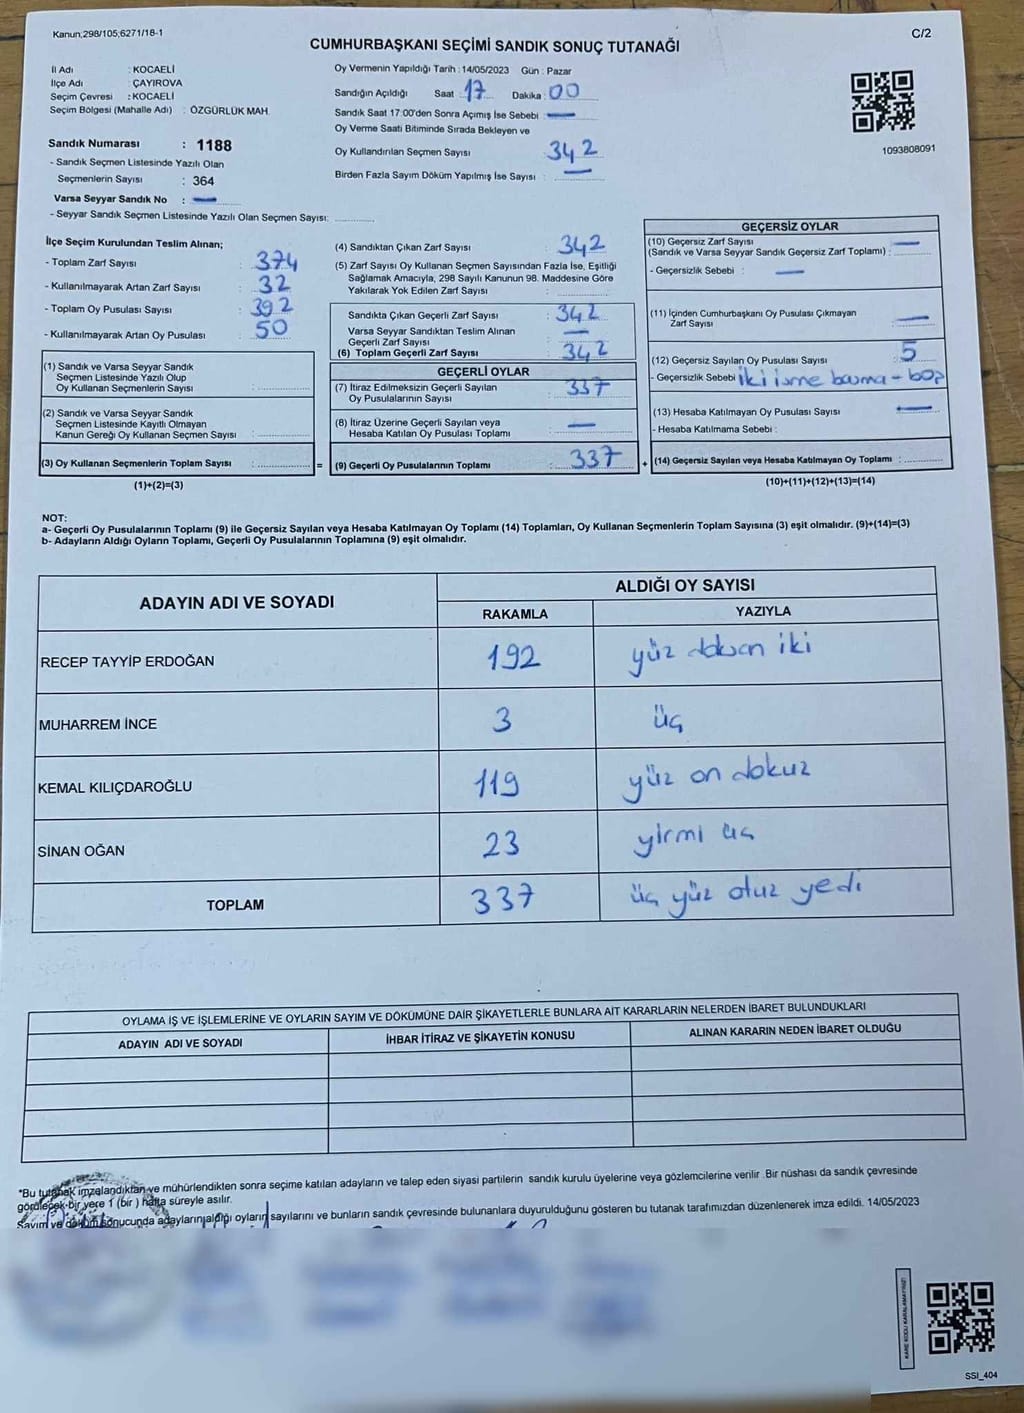 Kanun;298/105;6271/18-1
C/2
CUMHURBAŞKANI SEÇİMİ SANDIK SONUÇ TUTANAĞI
İl Adı : KOCAELİ
İlçe Adı : ÇAYIROVA
Seçim Çevresi : KOCAELİ
Seçim Bölgesi (Mahalle Adı) : ÖZGÜRLÜK MAH.
Sandık Numarası : 1188
- Sandık Seçmen Listesinde Yazılı Olan
Seçmenlerin Sayısı : 364
Varsa Seyyar Sandık No : —
- Seyyar Sandık Seçmen Listesinde Yazılı Olan Seçmen Sayısı:
Oy Vermenin Yapıldığı Tarih : 14/05/2023 Gün : Pazar
Sandığın Açıldığı Saat : 17 Dakika : 00
Sandık Saat 17:00'den Sonra Açımış İse Sebebi : —
Oy Verme Saati Bitiminde Sırada Bekleyen ve
Oy Kullandırılan Seçmen Sayısı 342
Birden Fazla Sayım Döküm Yapılmış İse Sayısı : —
1093808091
İlçe Seçim Kurulundan Teslim Alınan;
- Toplam Zarf Sayısı : 374
- Kullanılmayarak Artan Zarf Sayısı : 32
- Toplam Oy Pusulası Sayısı : 392
- Kullanılmayarak Artan Oy Pusulası : 50
(1) Sandık ve Varsa Seyyar Sandık
Seçmen Listesinde Yazılı Olup
Oy Kullanan Seçmenlerin Sayısı :
(2) Sandık ve Varsa Seyyar Sandık
Seçmen Listesinde Kayıtlı Olmayan
Kanun Gereği Oy Kullanan Seçmen Sayısı :
(3) Oy Kullanan Seçmenlerin Toplam Sayısı :
(1)+(2)=(3)
(4) Sandıktan Çıkan Zarf Sayısı : 342
(5) Zarf Sayısı Oy Kullanan Seçmen Sayısından Fazla İse, Eşitliği
Sağlamak Amacıyla, 298 Sayılı Kanunun 98. Maddesine Göre
Yakılarak Yok Edilen Zarf Sayısı :
Sandıkta Çıkan Geçerli Zarf Sayısı : 342
Varsa Seyyar Sandıktan Teslim Alınan
Geçerli Zarf Sayısı : —
(6) Toplam Geçerli Zarf Sayısı : 342
GEÇERLİ OYLAR
(7) İtiraz Edilmeksizin Geçerli Sayılan
Oy Pusulalarının Sayısı : 337
(8) İtiraz Üzerine Geçerli Sayılan veya
Hesaba Katılan Oy Pusulası Toplamı : —
= (9) Geçerli Oy Pusulalarının Toplamı : 337
GEÇERSİZ OYLAR
(10) Geçersiz Zarf Sayısı
(Sandık ve Varsa Seyyar Sandık Geçersiz Zarf Toplamı) : —
- Geçersizlik Sebebi : —
(11) İçinden Cumhurbaşkanı Oy Pusulası Çıkmayan
Zarf Sayısı : —
(12) Geçersiz Sayılan Oy Pusulası Sayısı : 5
- Geçersizlik Sebebi : iki isme basma -
(13) Hesaba Katılmayan Oy Pusulası Sayısı : —
- Hesaba Katılmama Sebebi :
+ (14) Geçersiz Sayılan veya Hesaba Katılmayan Oy Toplamı :
(10)+(11)+(12)+(13)=(14)
NOT:
a- Geçerli Oy Pusulalarının Toplamı (9) ile Geçersiz Sayılan veya Hesaba Katılmayan Oy Toplamı (14) Toplamları, Oy Kullanan Seçmenlerin Toplam Sayısına (3) eşit olmalıdır. (9)+(14)=(3)
b- Adayların Aldığı Oyların Toplamı, Geçerli Oy Pusulalarının Toplamına (9) eşit olmalıdır.
ADAYIN ADI VE SOYADI
ALDIĞI OY SAYISI
RAKAMLA YAZIYLA
RECEP TAYYİP ERDOĞAN 192 yüz doksan iki
MUHARREM İNCE 3 üç
KEMAL KILIÇDAROĞLU 119 yüz on dokuz
SİNAN OĞAN 23 yirmi üç
TOPLAM 337 üç yüz otuz yedi
OYLAMA İŞ VE İŞLEMLERİNE VE OYLARIN SAYIM VE DÖKÜMÜNE DAİR ŞİKAYETLERLE BUNLARA AİT KARARLARIN NELERDEN İBARET BULUNDUKLARI
ADAYIN ADI VE SOYADI İHBAR İTİRAZ VE ŞİKAYETİN KONUSU ALINAN KARARIN NEDEN İBARET OLDUĞU
*Bu tutanak imzalandıktan ve mühürlendikten sonra seçime katılan adayların ve talep eden siyasi partilerin sandık kurulu üyelerine veya gözlemcilerine verilir. Bir nüshası da sandık çevresinde
görülecek bir yere 1 (bir) hafta süreyle asılır.
Sayım ve döküm sonucunda adayların aldığı oyların sayılarını ve bunların sandık çevresinde bulunanlara duyurulduğunu gösteren bu tutanak tarafımızdan düzenlenerek imza edildi. 14/05/2023
KARE KODU KARALAMAYINIZ!
SSI_404